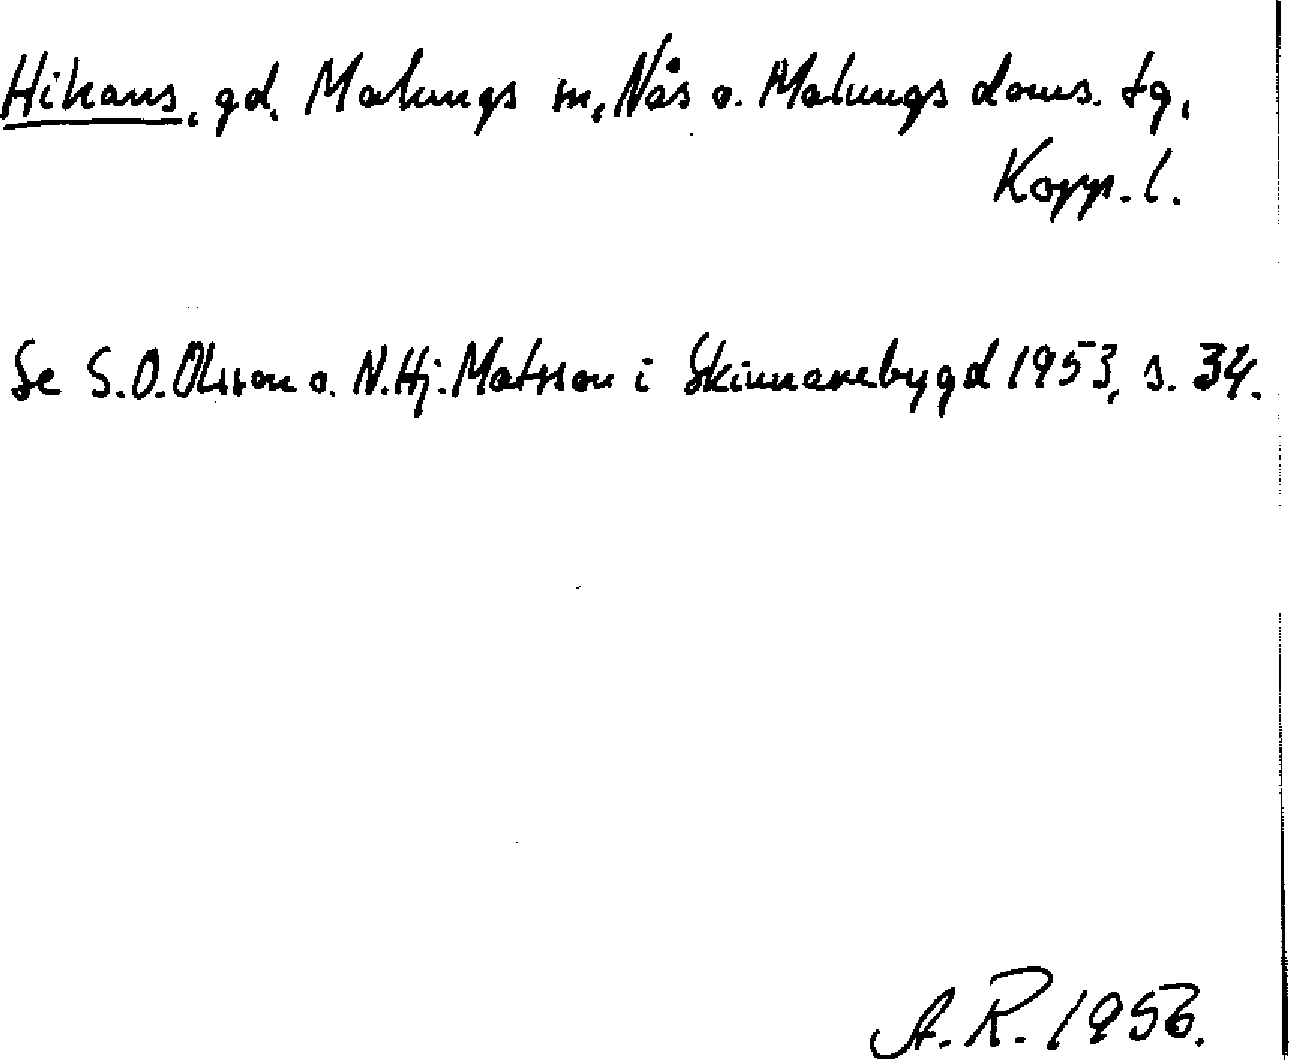 Hikans, gd. Malungs m, Nås o. Malungs doms. tg,
Kopp. l.
Se S.O.Olsson o. N.Hj.Matsson i Skinnarebygd 1953, s. 34.
A.R. 1956.